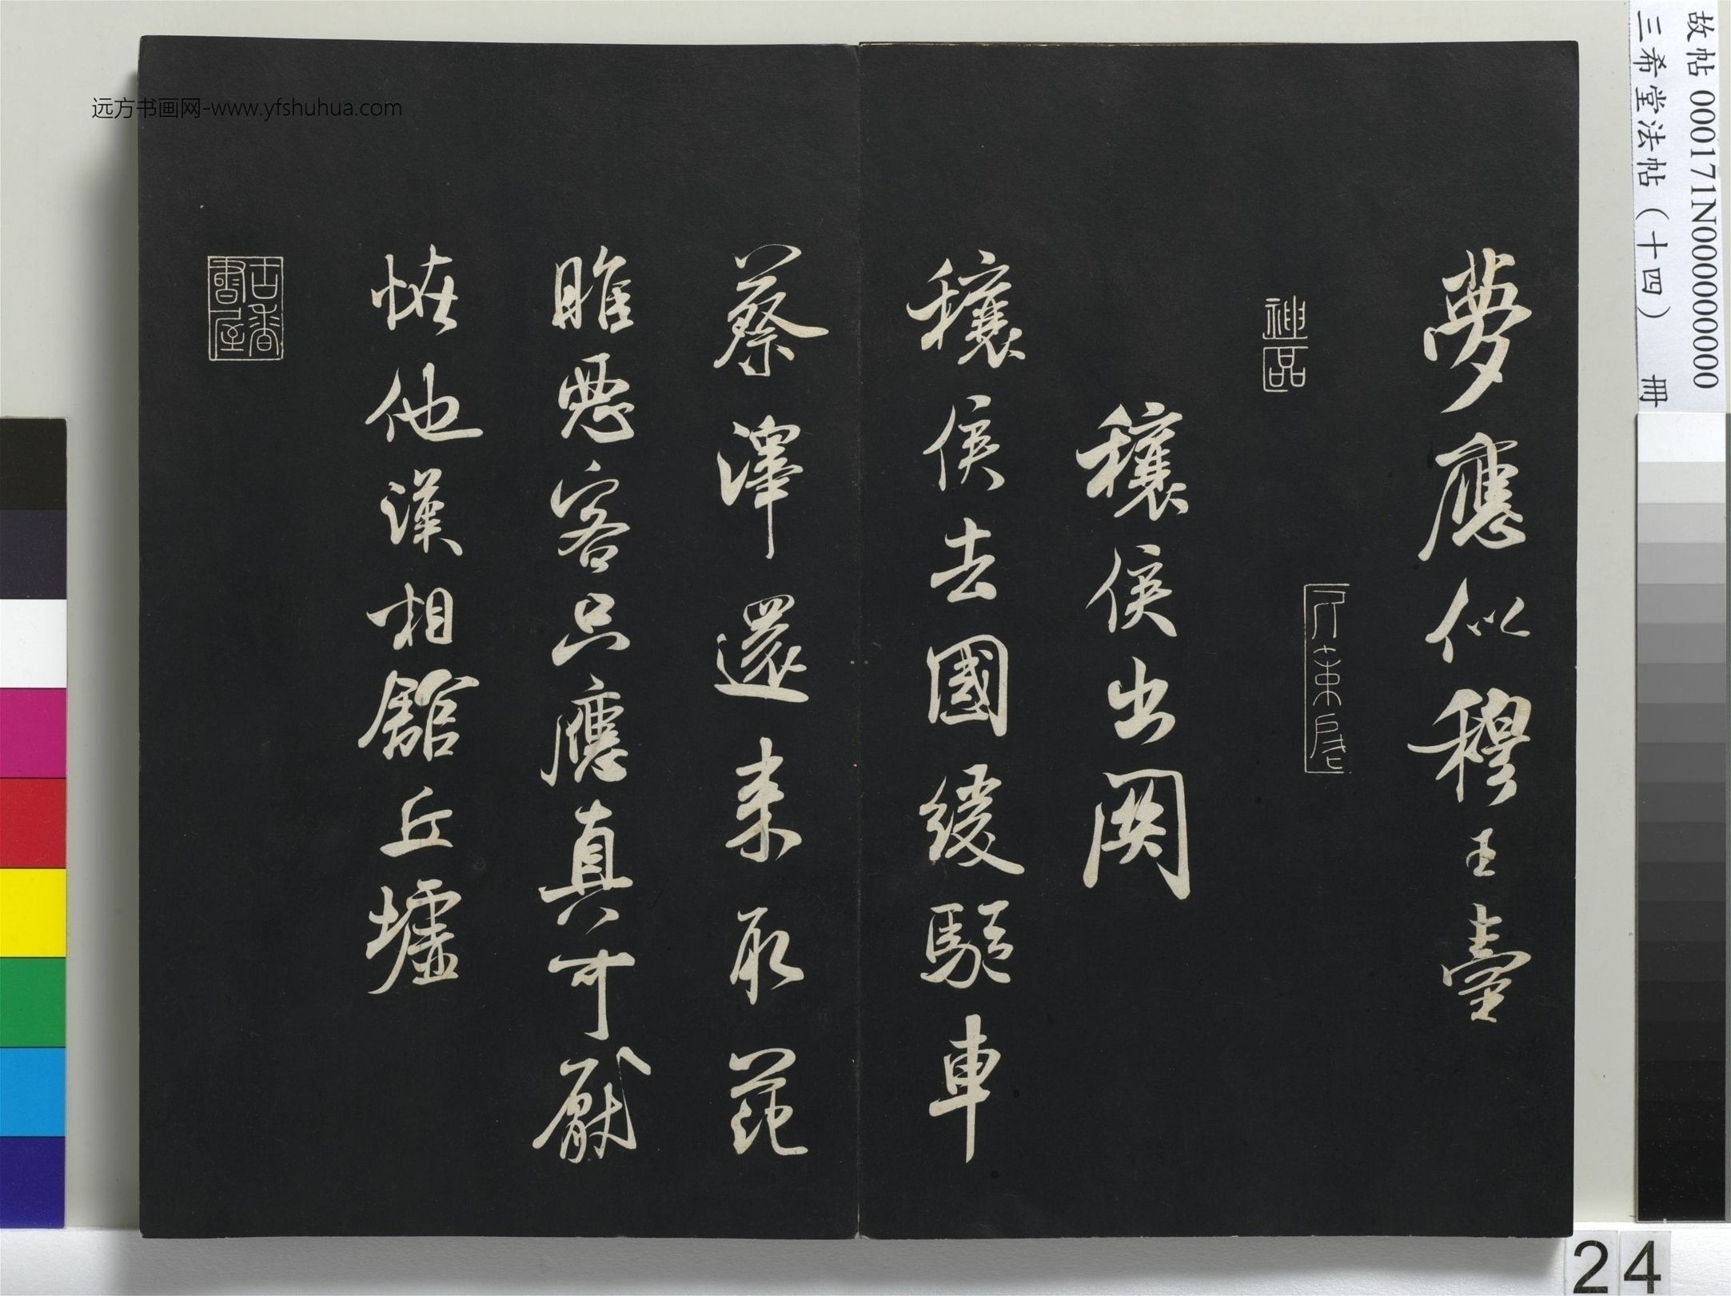 故帖 000171N000000000
三希堂法帖（十四） 冊
远方书画网-www.yfshuhua.com
夢應似穆王臺
穰侯出関
穰侯去國緩驅車
蔡澤還来取范
睢惡客只應真可厭
恠他漢相舘丘墟
古香書屋
24